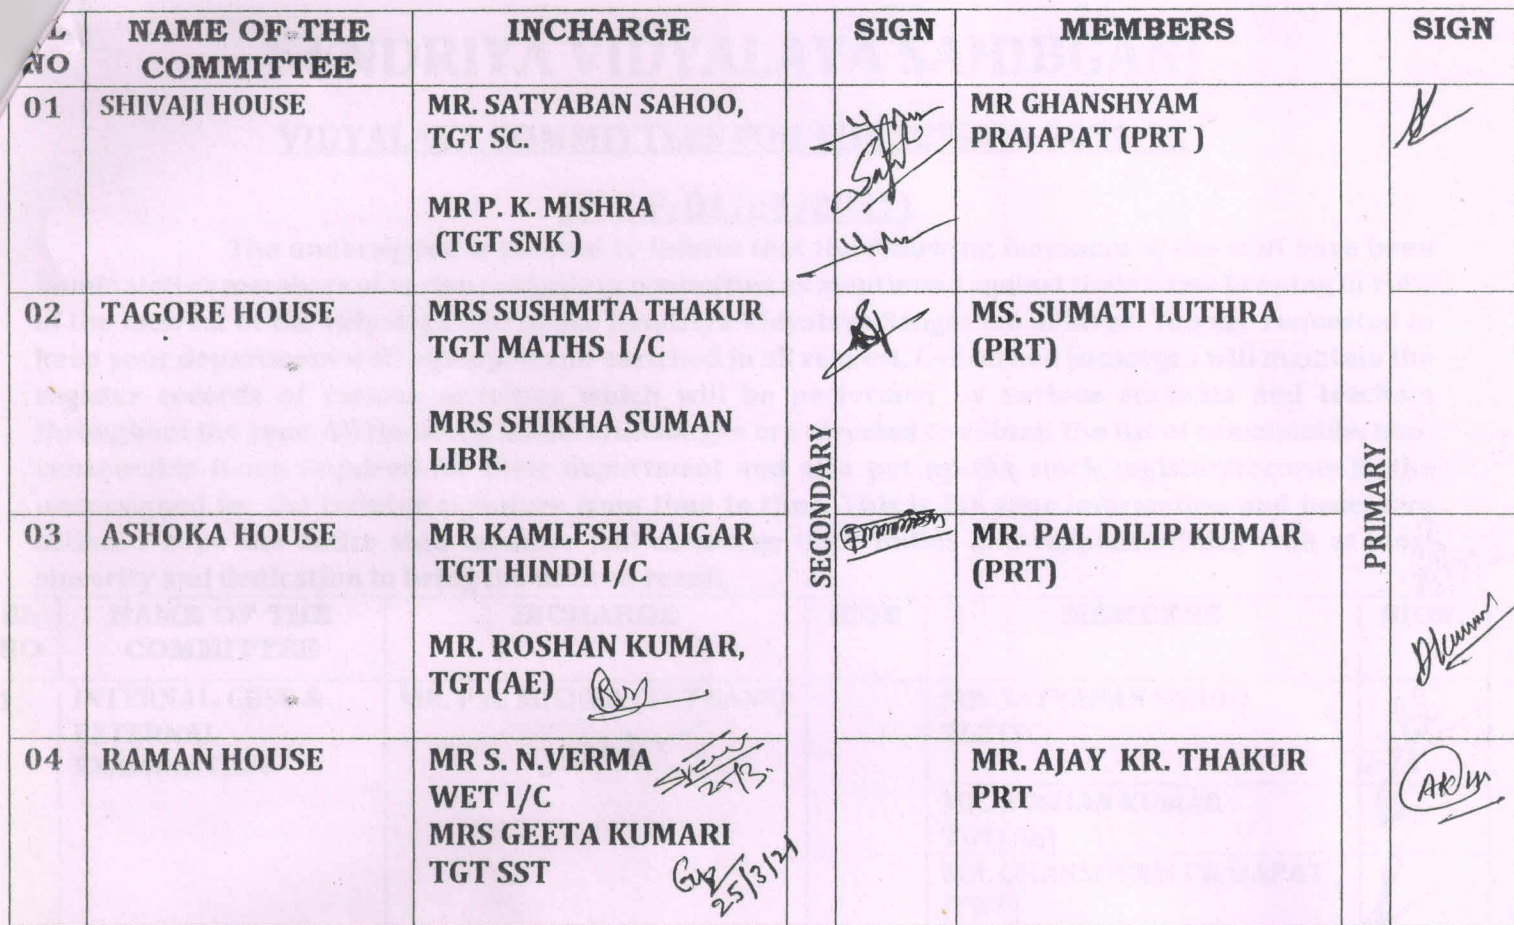 NO
NAME OF THE
COMMITTEE
INCHARGE
SIGN
MEMBERS
SIGN
01
SHIVAJI HOUSE
MR. SATYABAN SAHOO,
TGT SC.
MR P. K. MISHRA
(TGT SNK )
MR GHANSHYAM
PRAJAPAT (PRT )
SECONDARY
PRIMARY
02
TAGORE HOUSE
MRS SUSHMITA THAKUR
TGT MATHS I/C
MRS SHIKHA SUMAN
LIBR.
MS. SUMATI LUTHRA
(PRT)
03
ASHOKA HOUSE
MR. KAMLESH RAIGAR
TGT HINDI I/C
MR. ROSHAN KUMAR,
TGT(AE)
MR. PAL DILIP KUMAR
(PRT)
Dkumar
04
RAMAN HOUSE
MR S. N.VERMA
WET I/C
MRS GEETA KUMARI
TGT SST
25/3/21
MR. AJAY KR. THAKUR
PRT